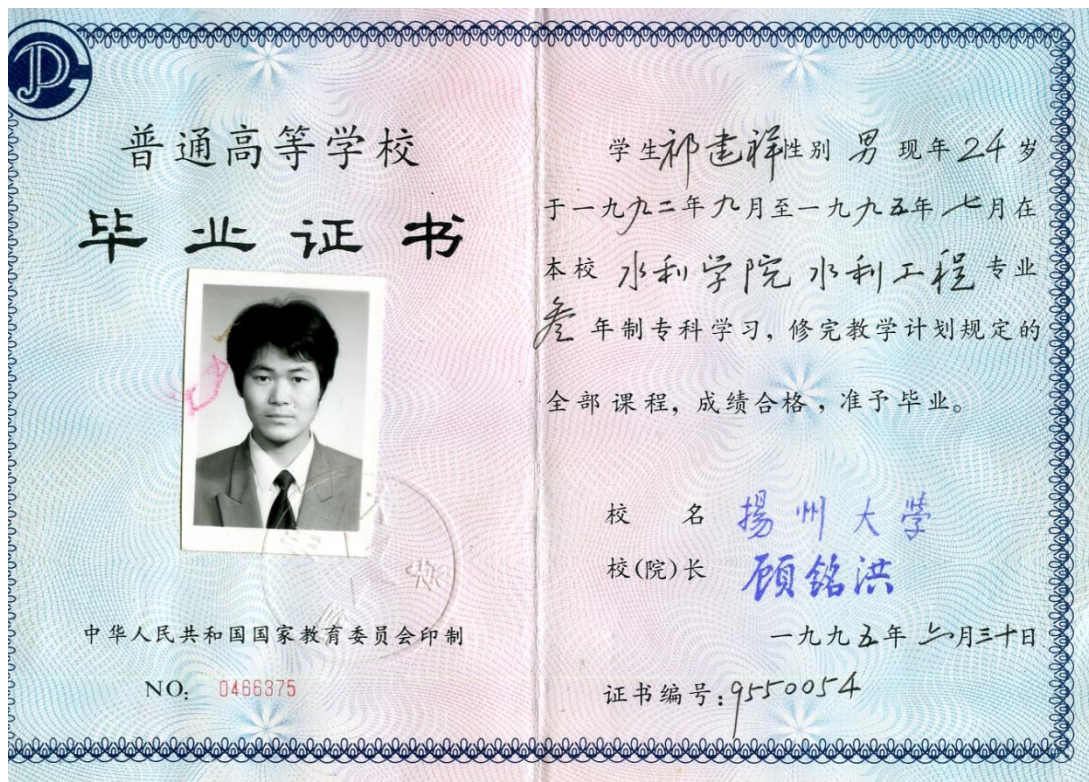 普通高等学校
毕业证书
中华人民共和国国家教育委员会印制
NO: 0466375
学生祁建祥性别 男 现年24岁
于一九九二年九月至一九九五年七月在
本校 水利学院 水利工程 专业
叁年制专科学习, 修完教学计划规定的
全部课程, 成绩合格, 准予毕业。
校 名 揚州大学
校(院)长 顾铭洪
一九九五年六月三十日
证书编号: 9550054